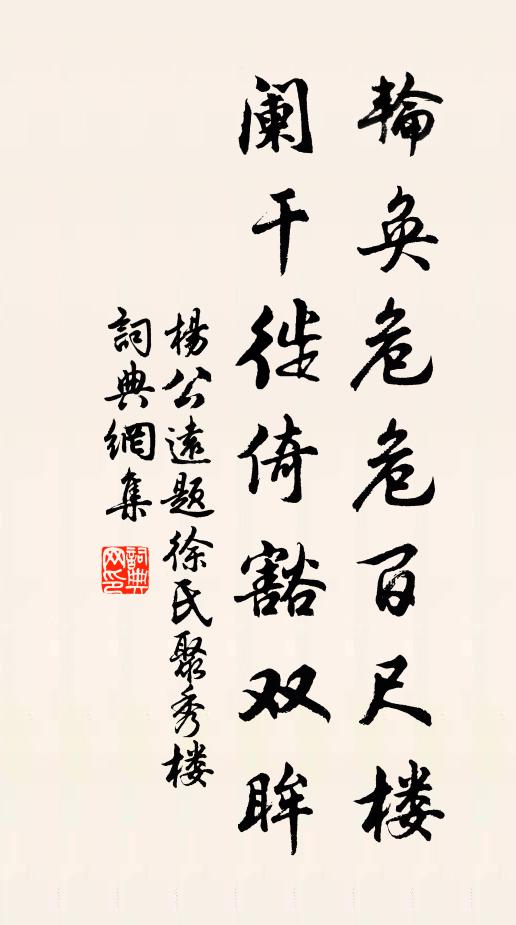 輪奂危危百尺楼
阑干徙倚豁双眸
楊公遠题徐氏聚秀楼
詞典網集
詞典网印